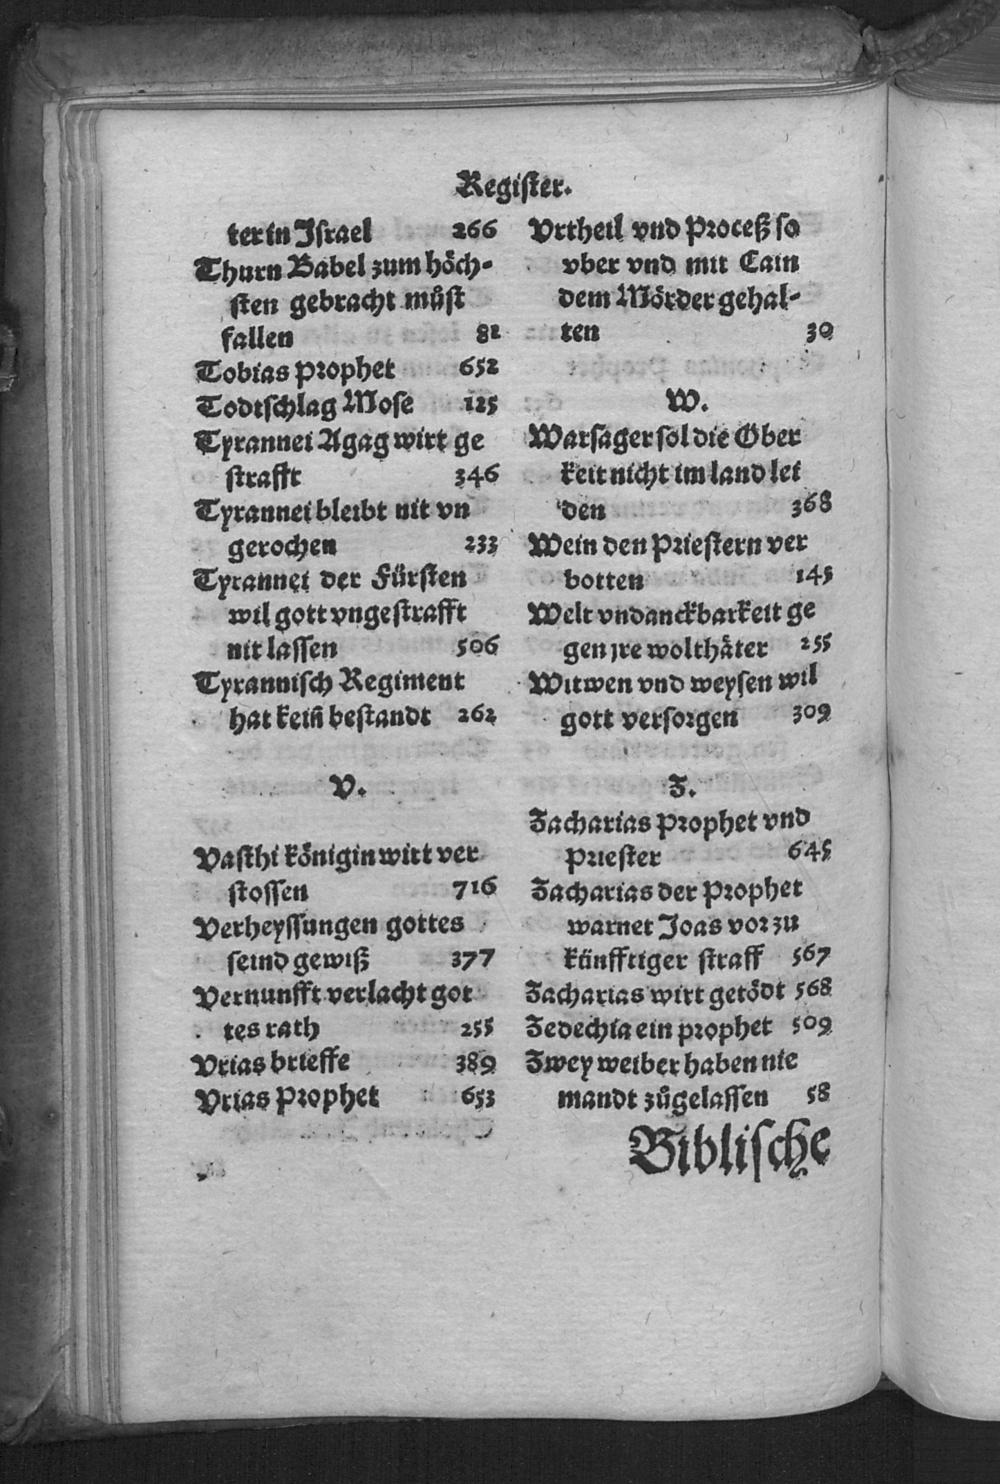 Register.
ter in Jsrael 266
Thurn Babel zum höch-
sten gebracht můst
fallen 82
Tobias Prophet 652
Todtschlag Mose 125
Tyrannei Agag wirt ge
strafft 346
Tyrannei bleibt nit vn
gerochen 233
Tyrannei der Fürsten
wil gott vngestrafft
nit lassen 506
Tyrannisch Regiment
hat keiñ bestandt 262
V.
Vasthi königin wirt ver
stossen 716
Verheyssungen gottes
seind gewiß 377
Vernunfft verlacht got
tes rath 255
Vrias brieffe 389
Vrias Prophet 653
Vrtheil vnd Proceß so
vber vnd mit Cain
dem Mörder gehal-
ten 30
W.
Warsager sol die Ober
keit nicht im land lei
den 368
Wein den Priestern ver
botten 145
Welt vndanckbarkeit ge
gen jre wolthäter 255
Witwen vnd weysen wil
gott versorgen 309
Z.
Zacharias Prophet vnd
Priester 645
Zacharias der Prophet
warnet Joas vor zu
künfftiger straff 567
Zacharias wirt getödt 568
Zedechia ein prophet 509
Zwey weiber haben nie
mandt zůgelassen 58
Biblische